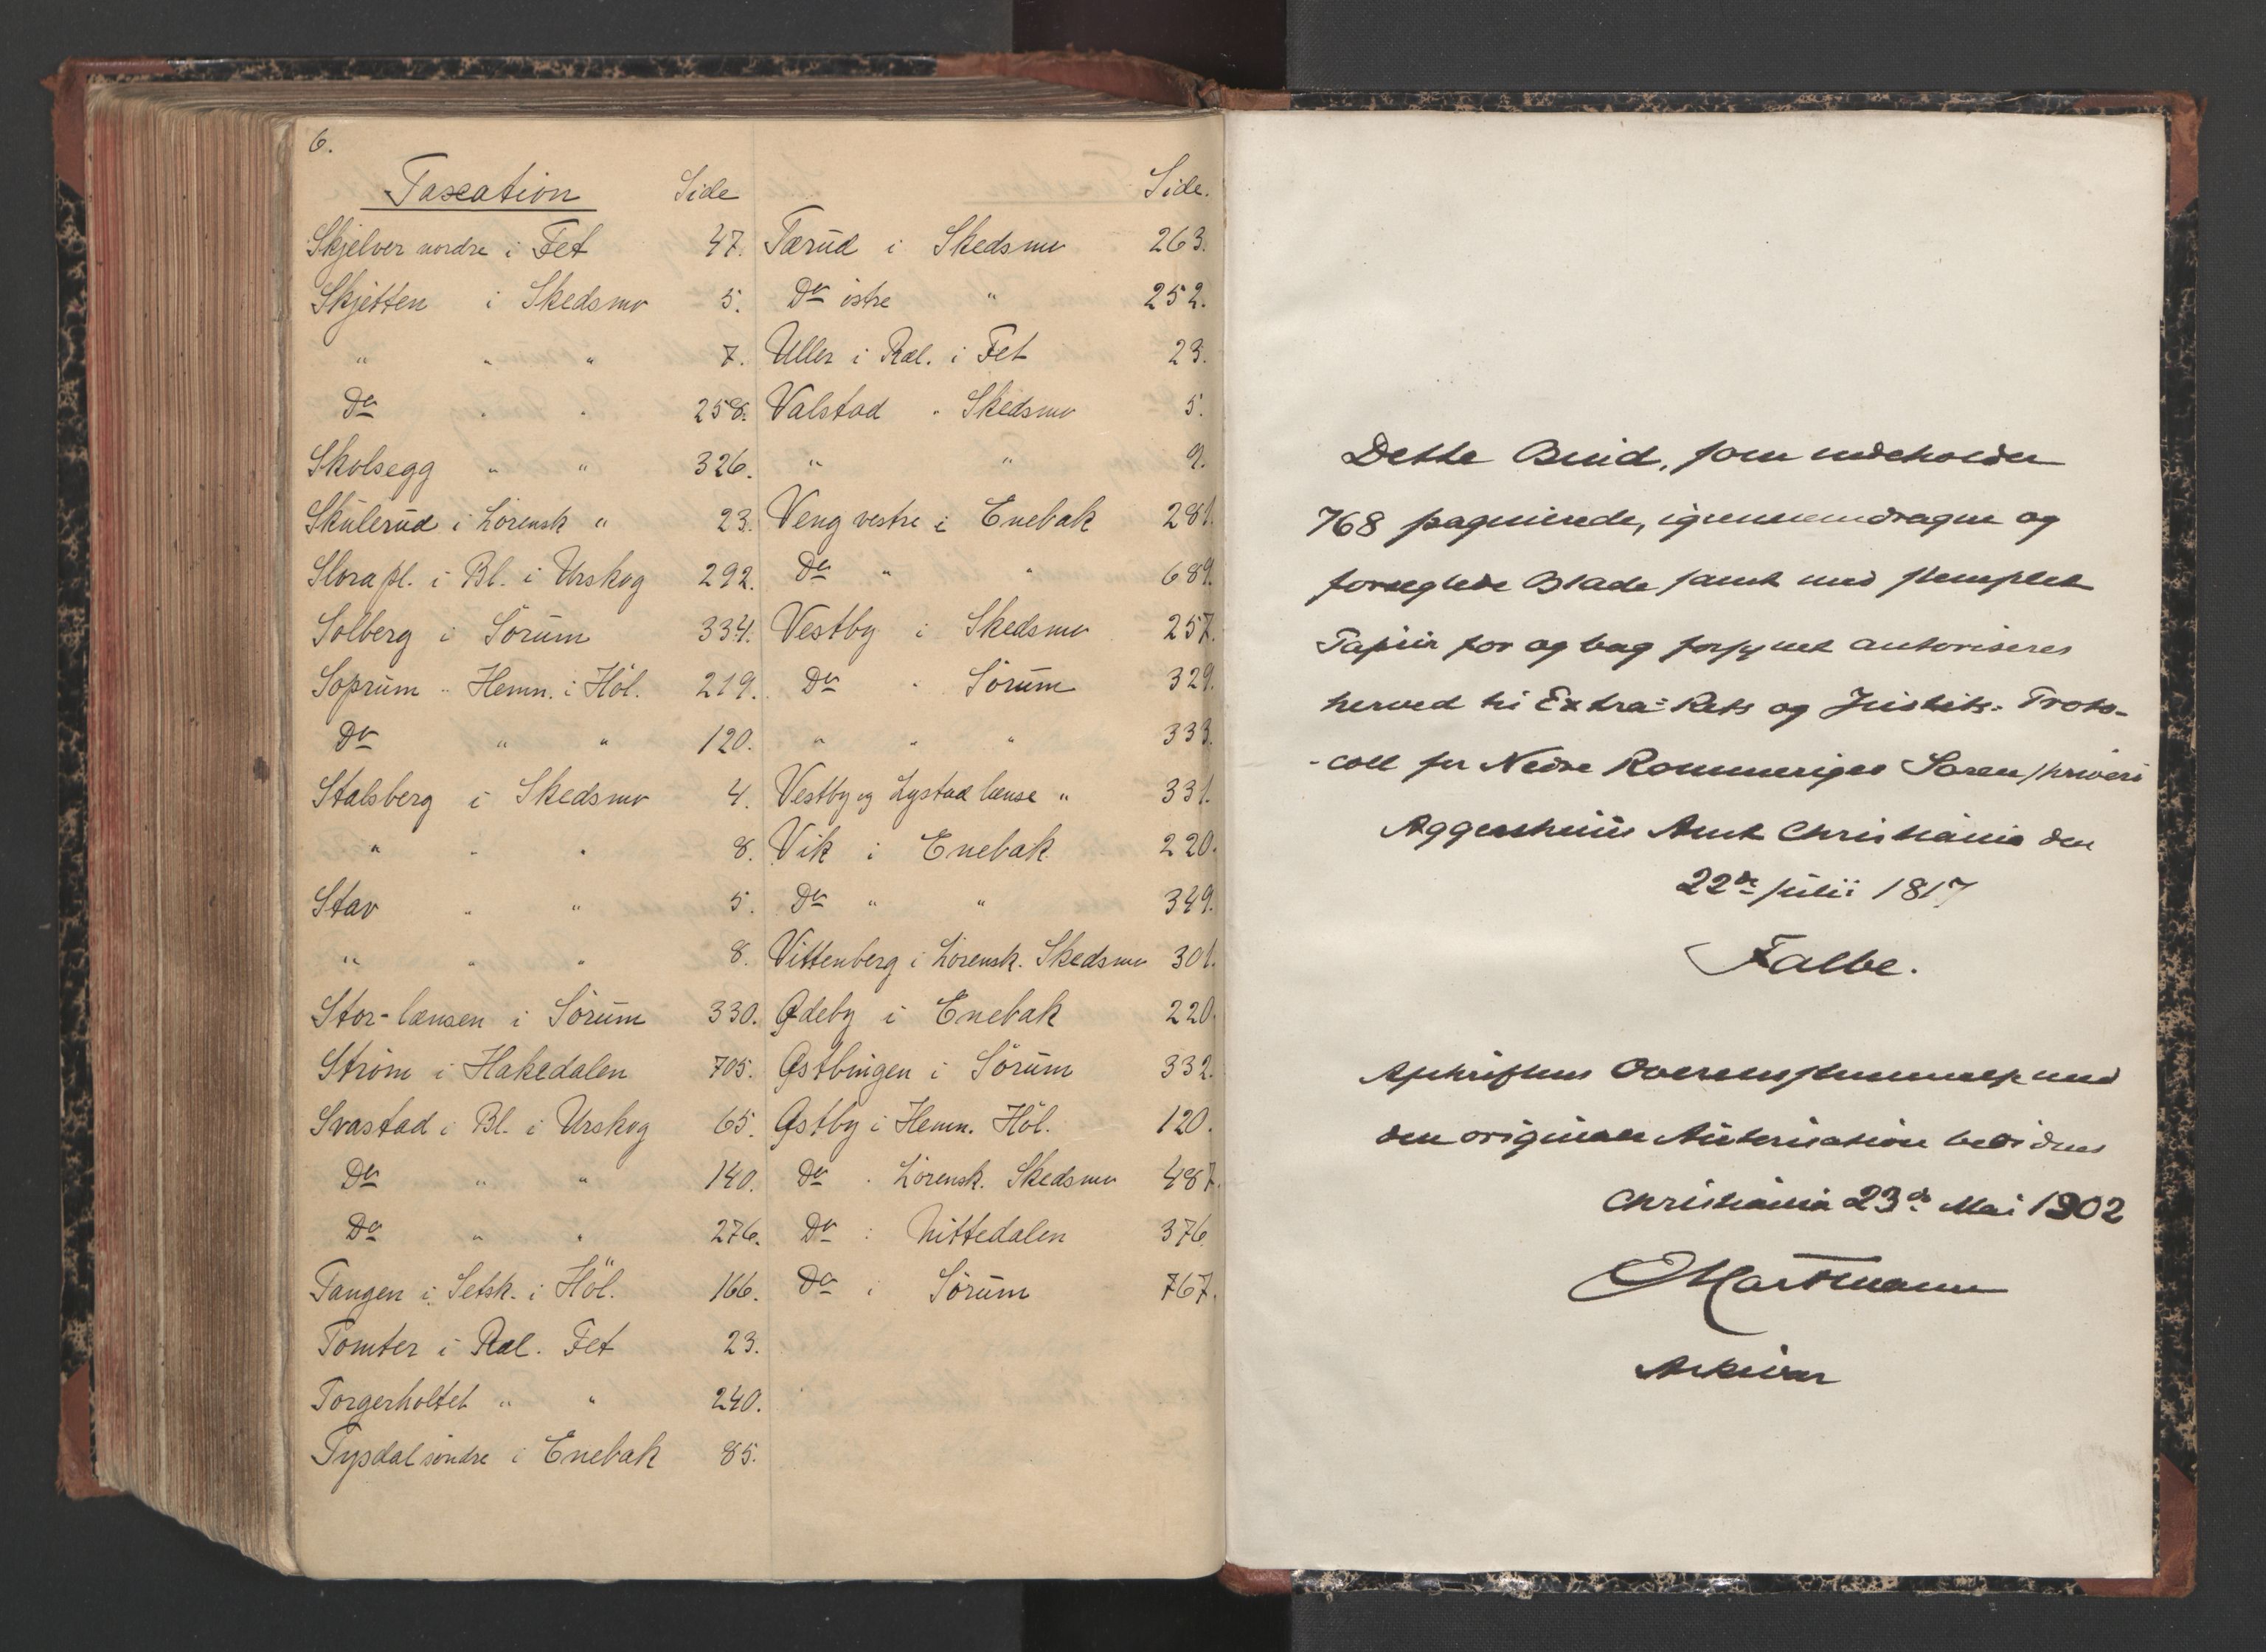 6.
Taxation Side
Skjelver nordre i Fet 47.
Skjetten i Skedsmo 5.
" " " 7.
Do " " 258.
Skolsegg " " 326.
Skulerud i Lörensk " 23.
Slora pl. i Bl. i Urskog 292.
Solberg i Sörum 334.
Soprum " Hemn. i Höl. 219.
Do " " 120.
Stalsberg i Skedsmo 4.
" " " 8.
Stav " " 5.
" " " 8.
Stor-lænsen i Sörum 330.
Ström i Hakedalen 705.
Svastad i Bl. i Urskog 65.
Do " " 140.
Do " " 276.
Tangen i Setsk. i Höl. 166.
Tomter i Ræl. Fet 23.
Torgerholtet " " 240.
Tysdal söndre i Enebak 85.
Side.
Tærud i Skedsmo 263.
Do östre " 252.
Uller i Ræl. i Fet 23.
Valstad " Skedsmo 5.
" " 9.
Veng vestre i Enebak 281.
Do " " 689.
Vestby i Skedsmo 257.
Do " Sörum 329.
" " " 333.
Vestby og Lystad lænse " 331.
Vik i Enebak 220.
Do " " 349.
Vittenberg i Lörensk. Skedsmo 301.
Ødeby i Enebak 220.
Østbingen i Sörum 332.
Østby i Hemn. Höl. 120.
Do " Lörensk. Skedsmo 487.
Do : Nittedalen 376.
Do i Sörum 767.
Dette Bind, som indeholder
768 paginerede, igjennemdragne og
forseglede Blade samt med stemplet
Papiir for og bag forsynet autoriseres
herved til Extra-Rets og Justits-Proto-
-coll for Nedre Rommeriges Sorenskriveri
Aggershuus Amt Christiania den
22de Julii 1817
Falbe.
Afskriftens Overensstemmelse med
den originale Autorisation bevidnes
Christiania 23de Mai 1902
Martmann
Arkivar